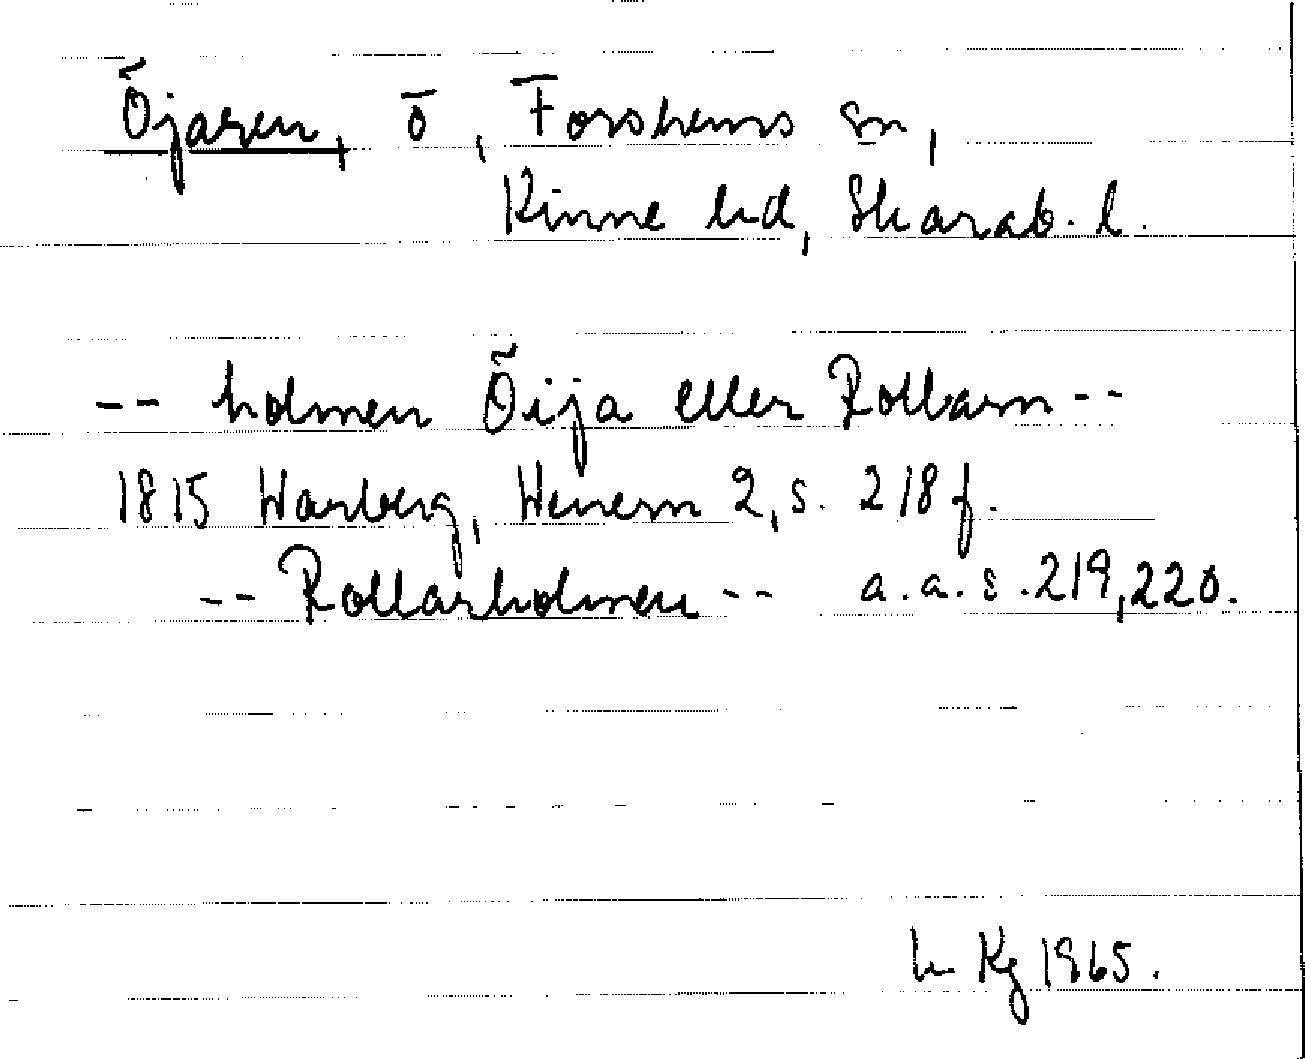 Öjaren, ö, Forshems sn,
Kinne hd, Skarab. l.
-- holmen Öija eller Rollarn --
1815 Warberg, Wenern 2, s. 218 f.
-- Rollarholmen -- a.a. s. 219, 220.
Kg 1965.